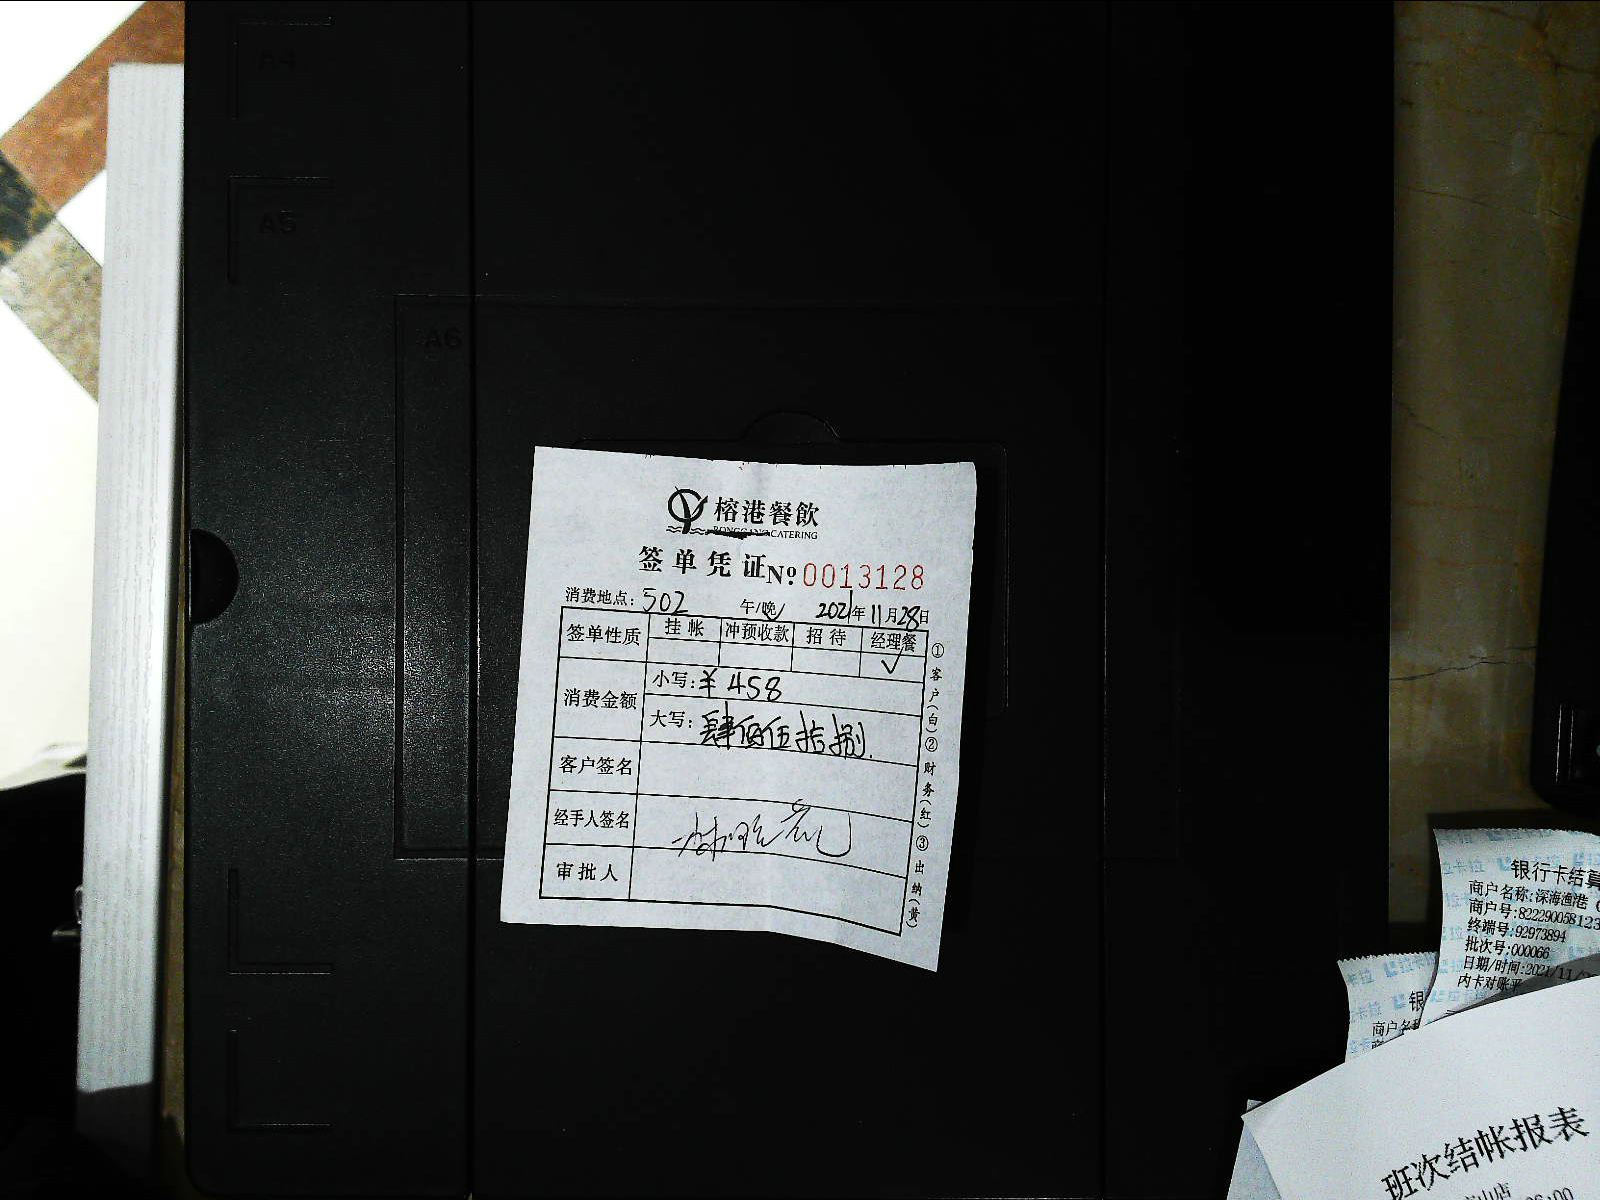 A4
A5
A6
榕港餐飲
RONGGANG CATERING
签单凭证 Nº 0013128
消费地点: 502 午/晚√ 2021年11月28日
签单性质 挂帐 冲预收款 招待 经理餐
√
消费金额 小写: ¥458
大写: 肆佰伍拾捌
客户签名
经手人签名
审批人
①客户(白)②财务(红)③出纳(黄)
银行卡结算
商户名称:深海渔港(
商户号:822290058123
终端号:92973894
批次号:000066
日期/时间:2021/11/
内卡对账平
银
商户名称
班次结帐报表